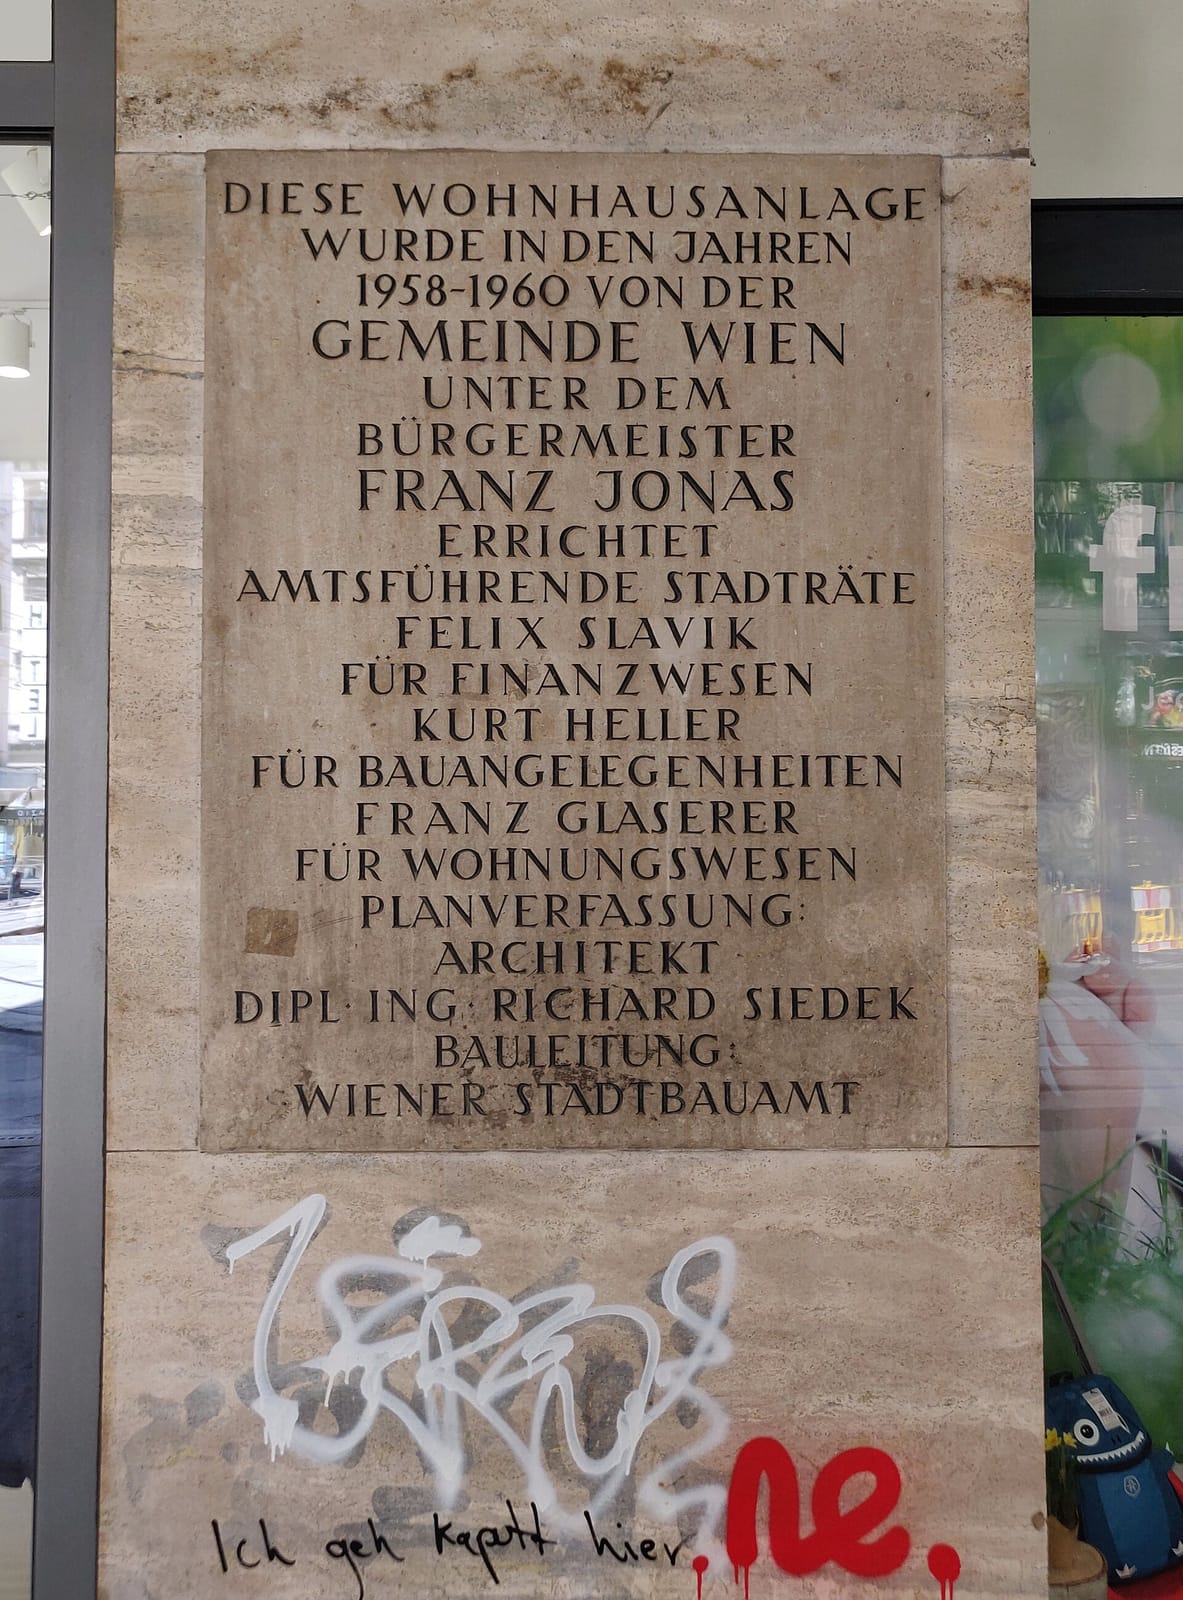 DIESE WOHNHAUSANLAGE
WURDE IN DEN JAHREN
1958-1960 VON DER
GEMEINDE WIEN
UNTER DEM
BÜRGERMEISTER
FRANZ JONAS
ERRICHTET
AMTSFÜHRENDE STADTRÄTE
FELIX SLAVIK
FÜR FINANZWESEN
KURT HELLER
FÜR BAUANGELEGENHEITEN
FRANZ GLASERER
FÜR WOHNUNGSWESEN
PLANVERFASSUNG:
ARCHITEKT
DIPL· ING· RICHARD SIEDEK
BAULEITUNG:
WIENER STADTBAUAMT
Ich geh kaputt hier
.ne.